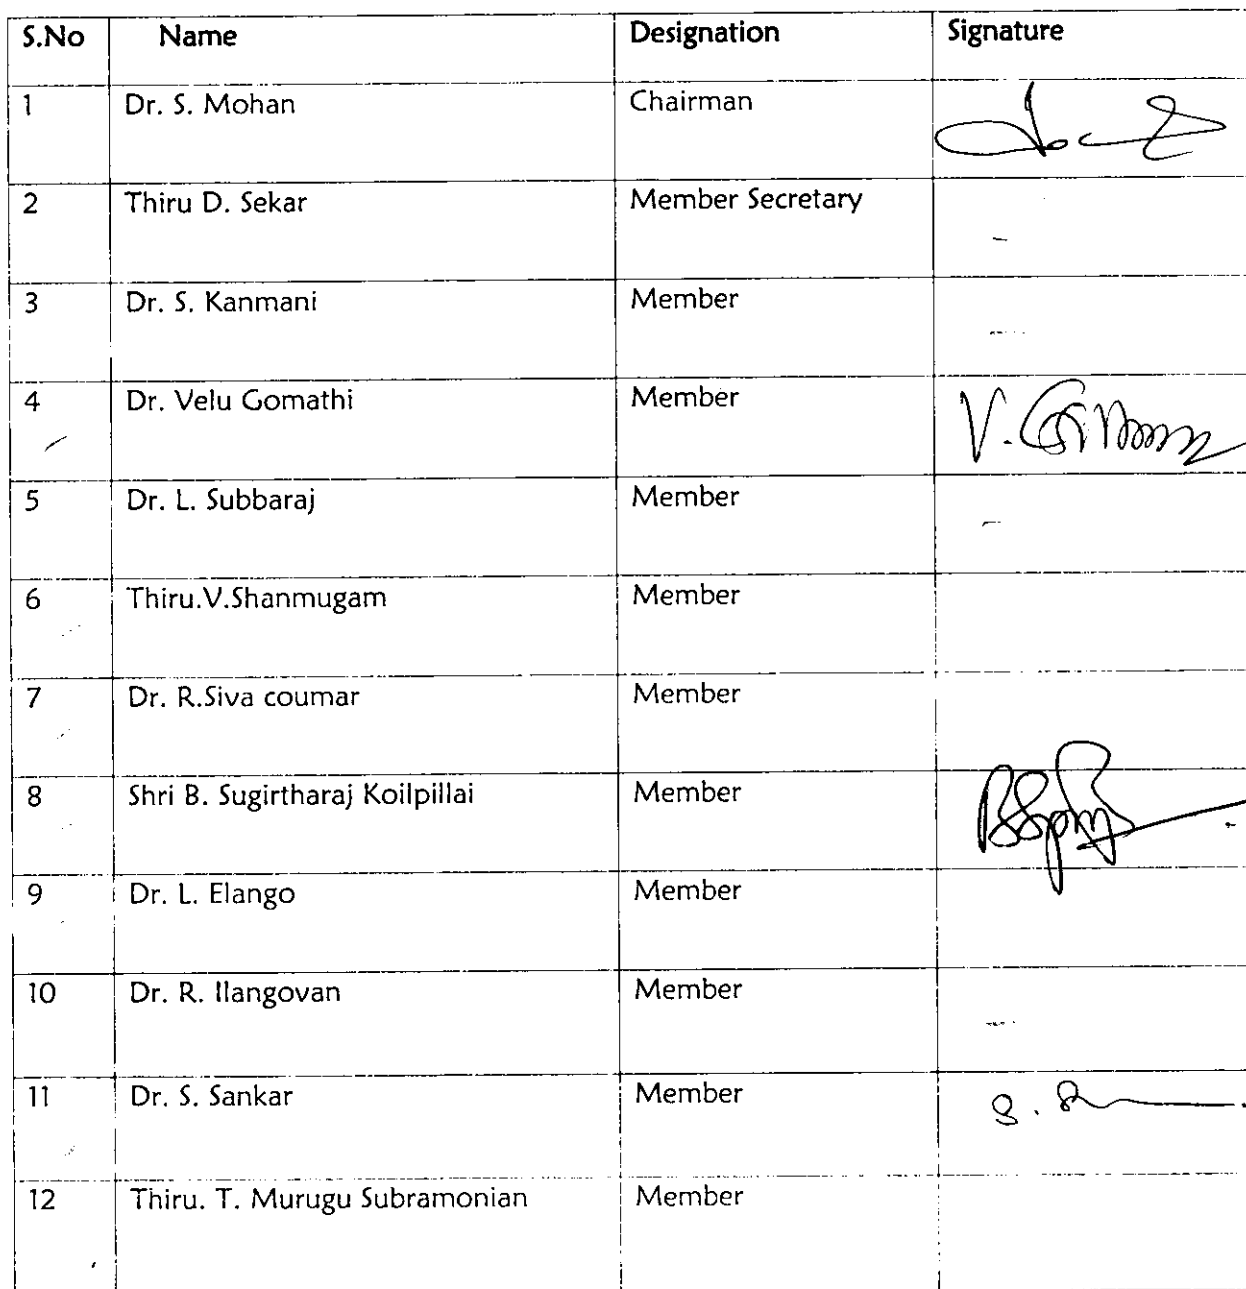 S.No Name Designation Signature
1 Dr. S. Mohan Chairman
2 Thiru D. Sekar Member Secretary
3 Dr. S. Kanmani Member
4 Dr. Velu Gomathi Member
5 Dr. L. Subbaraj Member
6 Thiru.V.Shanmugam Member
7 Dr. R.Siva coumar Member
8 Shri B. Sugirtharaj Koilpillai Member
9 Dr. L. Elango Member
10 Dr. R. Ilangovan Member
11 Dr. S. Sankar Member
12 Thiru. T. Murugu Subramonian Member